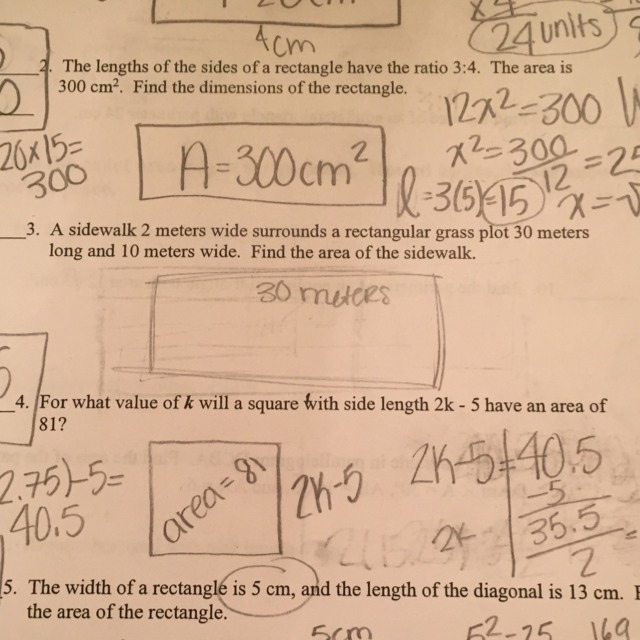 4cm
24 units
2. The lengths of the sides of a rectangle have the ratio 3:4. The area is
300 cm². Find the dimensions of the rectangle.
12x²=300
20x15=
300
A=300cm²
x²=300/12=25
l=3(5)=15
x=√
3. A sidewalk 2 meters wide surrounds a rectangular grass plot 30 meters
long and 10 meters wide. Find the area of the sidewalk.
30 meters
4. For what value of k will a square with side length 2k - 5 have an area of
81?
2.75)-5=
40.5
area=81
2k-5
2k-5=40.5
-5
2k 35.5 =
2
5. The width of a rectangle is 5 cm, and the length of the diagonal is 13 cm.
the area of the rectangle.
5cm
5²=25
169